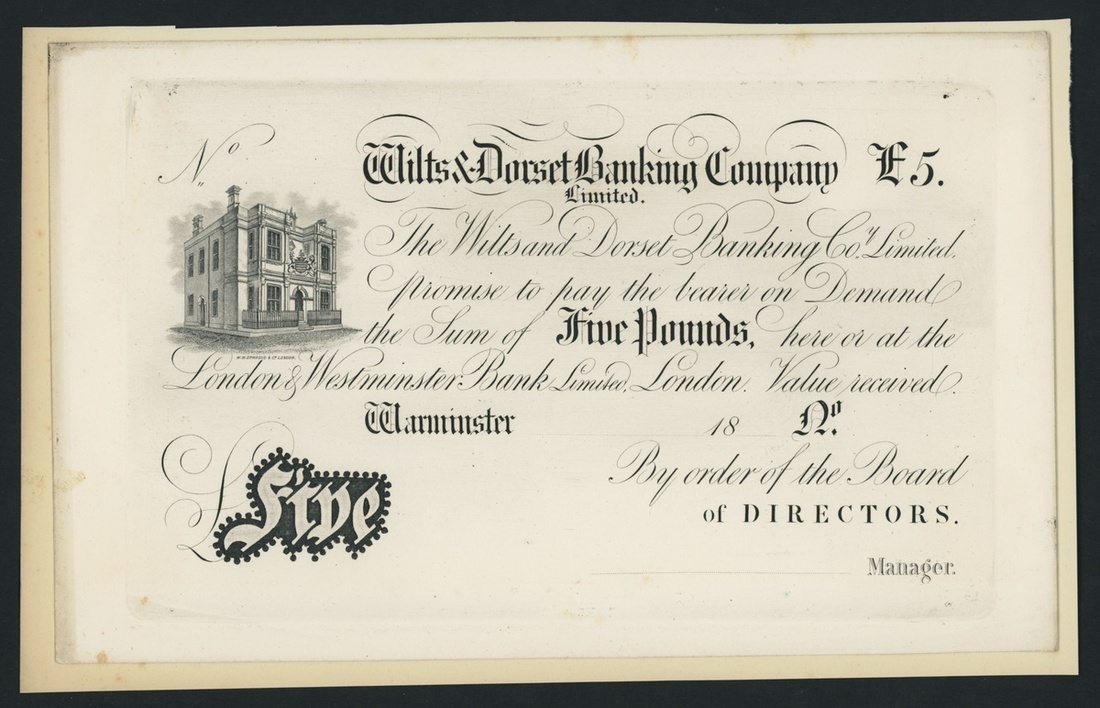 No.
Wilts & Dorset Banking Company £5.
Limited.
The Wilts and Dorset Banking Coy. Limited.
promise to pay the bearer on Demand
the Sum of Five Pounds, here or at the
W.W. SPRAGUE & Co. LONDON.
London & Westminster Bank Limited, London. Value received.
Warminster 18 No.
£ Five
By order of the Board
of DIRECTORS.
Manager.